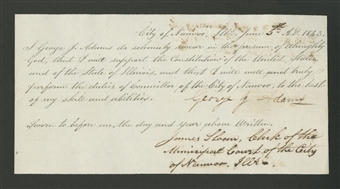 City of Nauvoo, Ills. June 5th A.D. 1843.
I George J. Adams do solemnly swear in the presence of Almighty
God, that I will support the Constitution of the United States
and of the State of Illinois, and that I will well and truly
perform the duties of Councillor of the City of Nauvoo, to the best
of my skill and abilities.
George J Adams
Sworn to before me, the day and year above written.
James Sloan, Clerk of the
Municipal Court of the City
of Nauvoo, Ills.